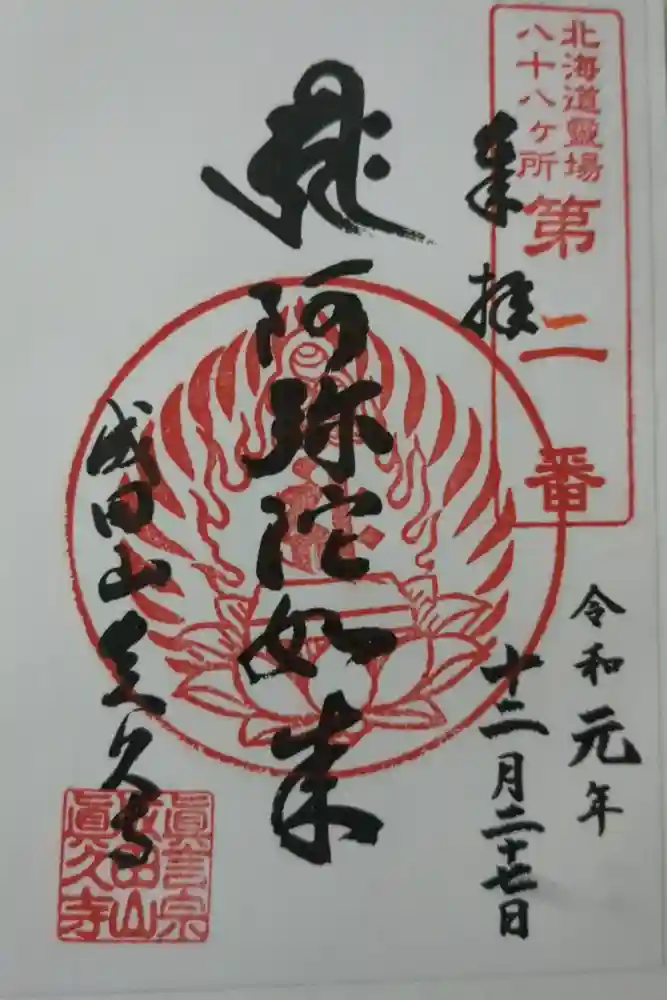 北海道霊場
八十八ヶ所
第二番
奉拝
令和元年
十二月二十七日
阿弥陀如来
成田山真久寺
眞言宗
成田山
眞久寺